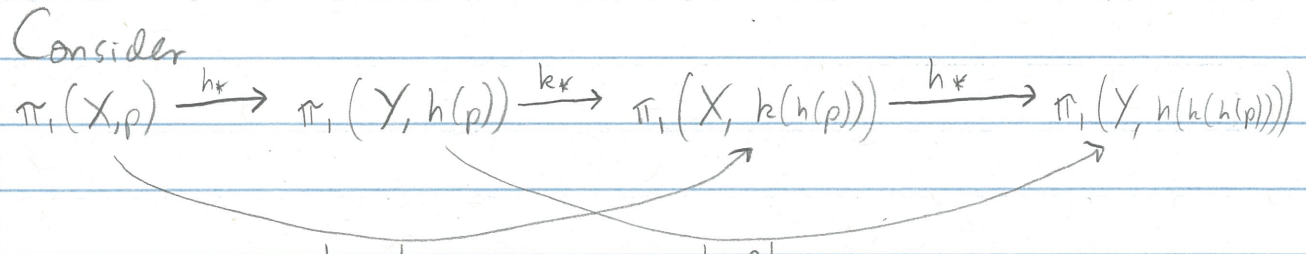 Consider
π₁(X,p) —h*→ π₁(Y, h(p)) —k*→ π₁(X, k(h(p))) —h*→ π₁(Y, h(k(h(p))))